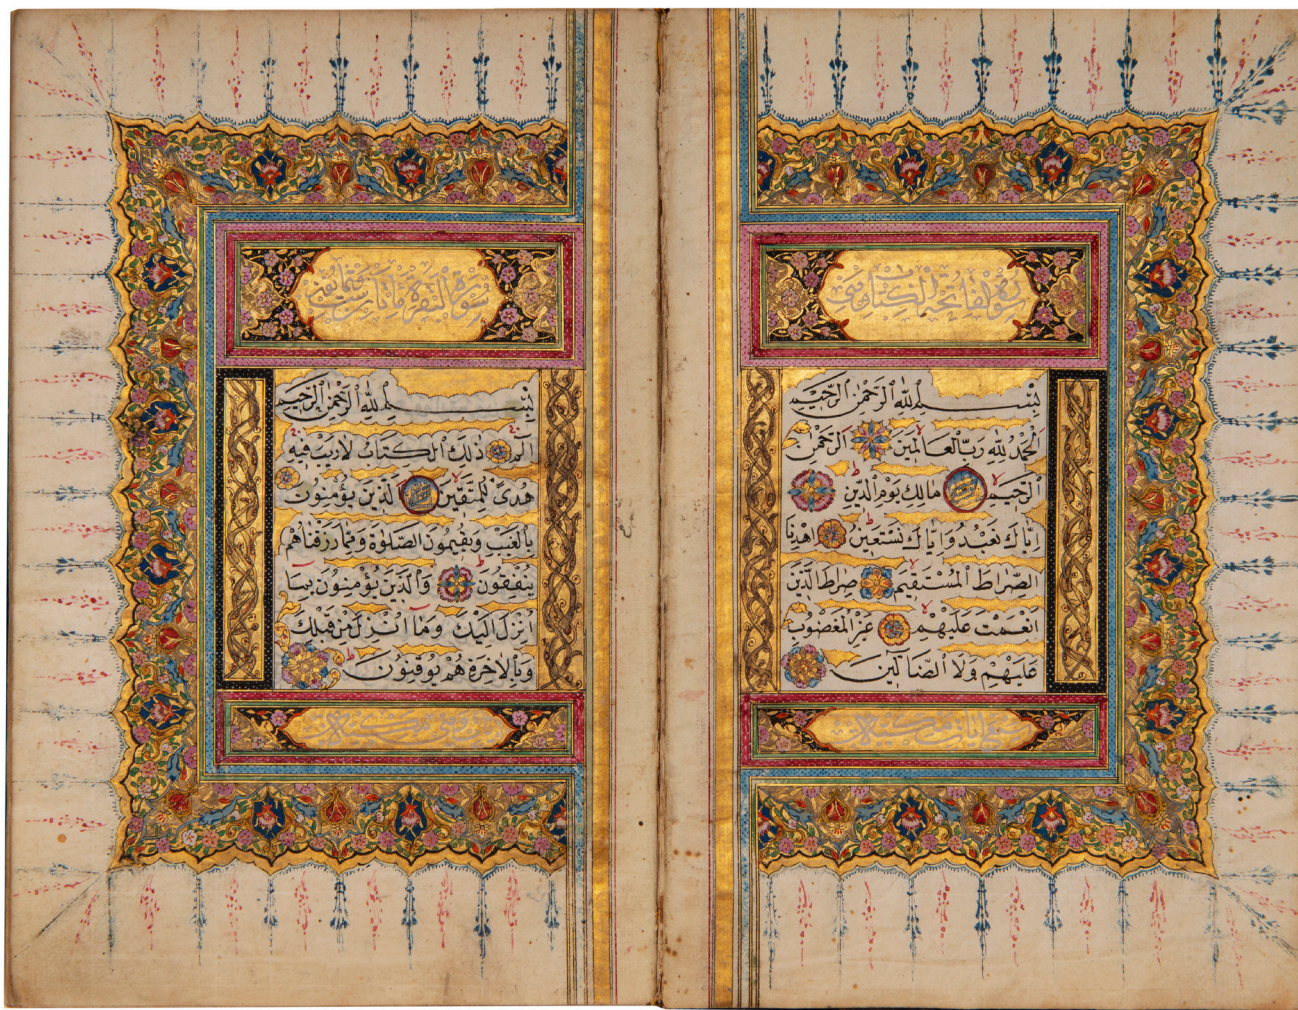 سورة الفاتحة الكتاب وهي
بسم الله الرحمن الرحيم
الحمد لله رب العالمين الرحمن
الرحيم مالك يوم الدين
اياك نعبد واياك نستعين اهدنا
الصراط المستقيم صراط الذين
انعمت عليهم غير المغضوب
عليهم ولا الضالين
سورة البقرة مائتان
بسم الله الرحمن الرحيم
الم ذلك الكتاب لا ريب فيه
هدى للمتقين الذين يؤمنون
بالغيب ويقيمون الصلوة ومما رزقناهم
ينفقون والذين يؤمنون بما
انزل اليك وما انزل من قبلك
وبالاخرة هم يوقنون